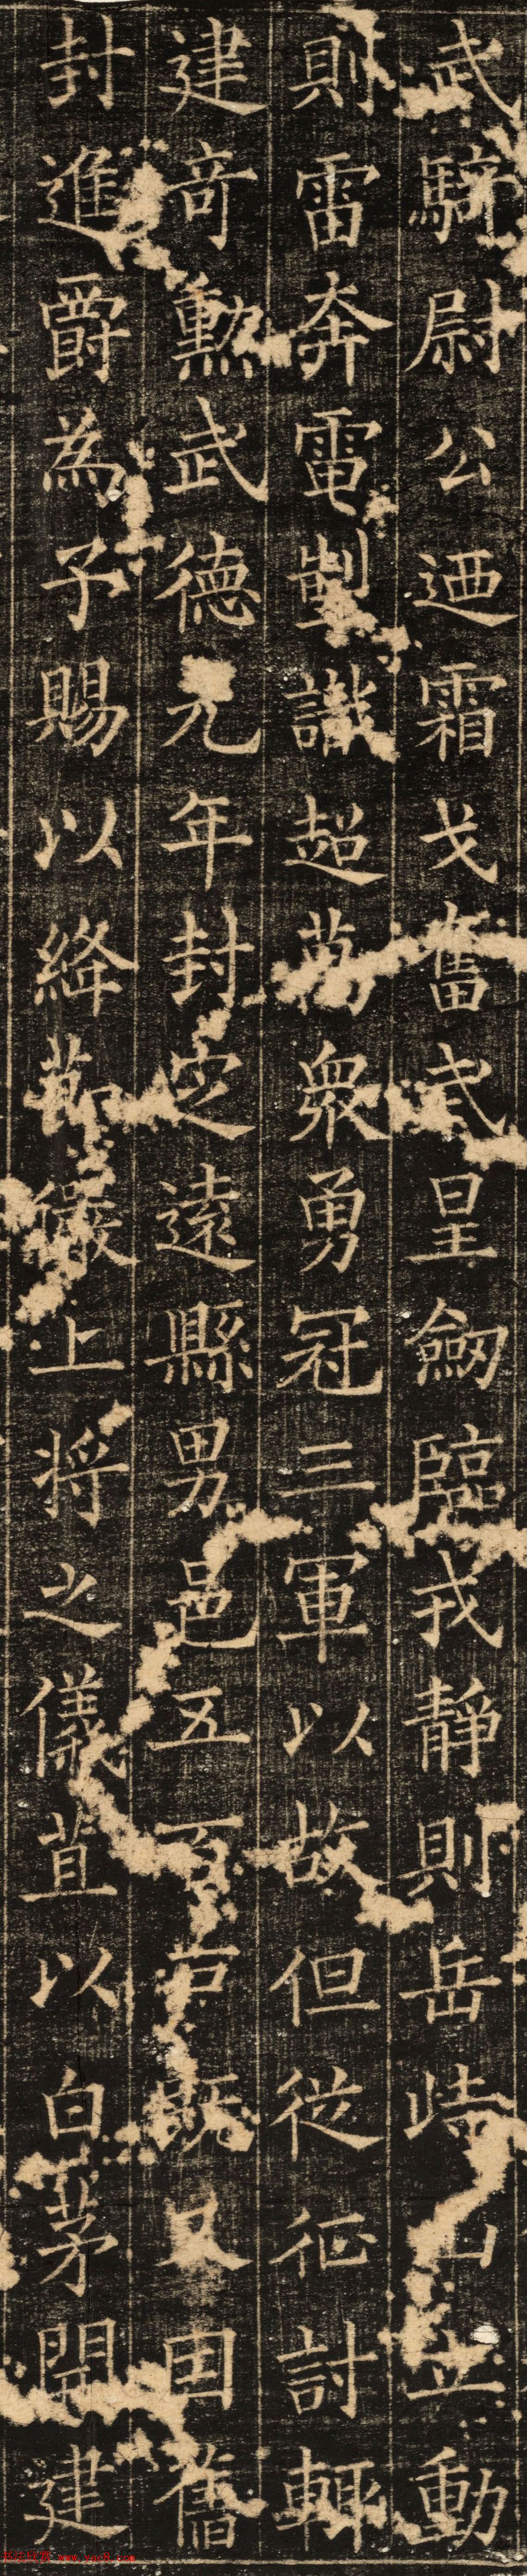 武騎尉公迺霜戈奮武星劒臨戎靜則岳峙山立動
則雷奔電製識超萬衆勇冠三軍以故但從征討輒
建奇勲武德元年封定遠縣男邑五百户既又因舊
封進爵為子賜以絳節儼上將之儀苴以白茅開建